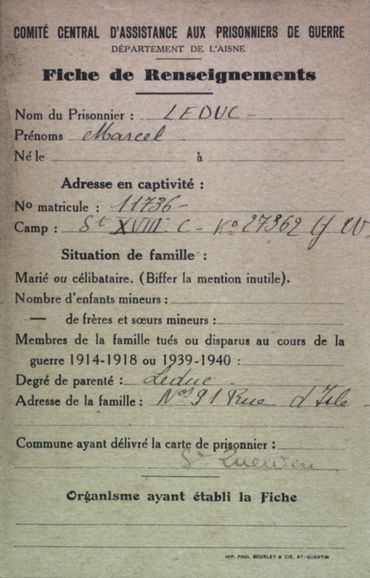 COMITÉ CENTRAL D'ASSISTANCE AUX PRISONNIERS DE GUERRE
DÉPARTEMENT DE L'AISNE
Fiche de Renseignements
Nom du Prisonnier : LEDUC -
Prénoms Marcel
Né le à
Adresse en captivité :
No matricule : 11736 -
Camp : St XVIII C - Ko 27362 GW
Situation de famille :
Marié ou célibataire. (Biffer la mention inutile).
Nombre d'enfants mineurs :
— de frères et sœurs mineurs :
Membres de la famille tués ou disparus au cours de la
guerre 1914-1918 ou 1939-1940 :
Degré de parenté : Leduc
Adresse de la famille : No 91 Rue d'Isle
Commune ayant délivré la carte de prisonnier :
St Quentin
Organisme ayant établi la Fiche
IMP. PAUL BOURLET & CIE, ST-QUENTIN